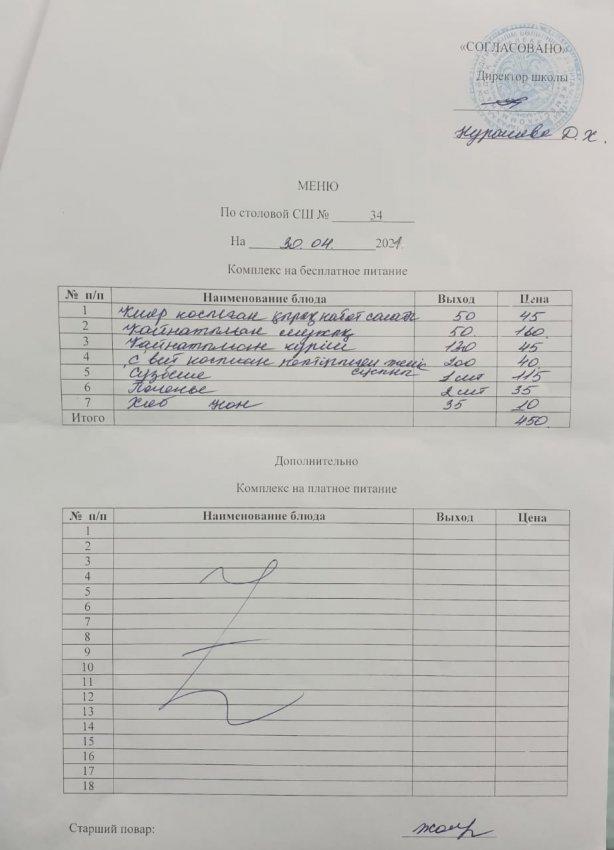 «СОГЛАСОВАНО»
Директор школы
Нуранова Д.Х.
МЕНЮ
По столовой СШ № 34
На 30.04. 2021.
Комплекс на бесплатное питание
№ п/п Наименование блюда Выход Цена
1 Кияр косылган қырыққабат салаты 50 45
2 Қайнатылған 50 160
3 Қайнатылған күріш 130 45
4 С вит косылган кептірілген жеміс сусыны 200 40
5 Сүзбеше 1 шт 115
6 Печенье 2 шт 35
7 Хлеб нан 35 10
Итого 450
Дополнительно
Комплекс на платное питание
№ п/п Наименование блюда Выход Цена
1
2
3
4
5
6
7
8
9
10
11
12
13
14
15
16
17
18
Старший повар: